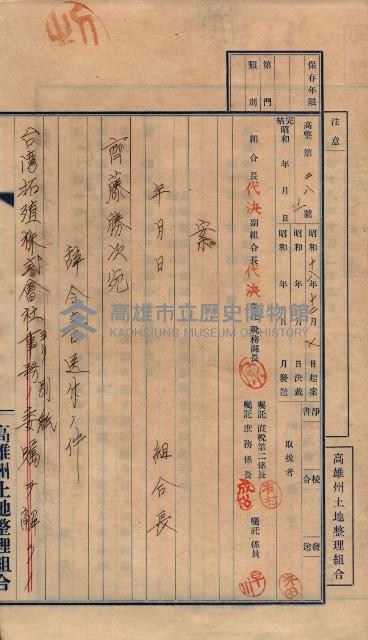 保存年限
第 門
類 別
注意
高雄州土地整理組合
高整第 二八 號
完結昭和 年 月 日
昭和 十八年 十二月 日 起案
昭和 年 月 日 決裁
昭和 年 月 日 發送
淨書
校合
發送
取扱者
組合長 代決
副組合長 代決
税務課長
囑託 直税第二係長
囑託 庶務係長
囑託 係員
案
年 月 日
組合長
齊藤勝次宛
辞令書送付ノ件
台湾拓殖株式會社事務ノ委囑ヲ解ク
別紙
高雄州土地整理組合
高雄市立歷史博物館
KAOHSIUNG MUSEUM OF HISTORY